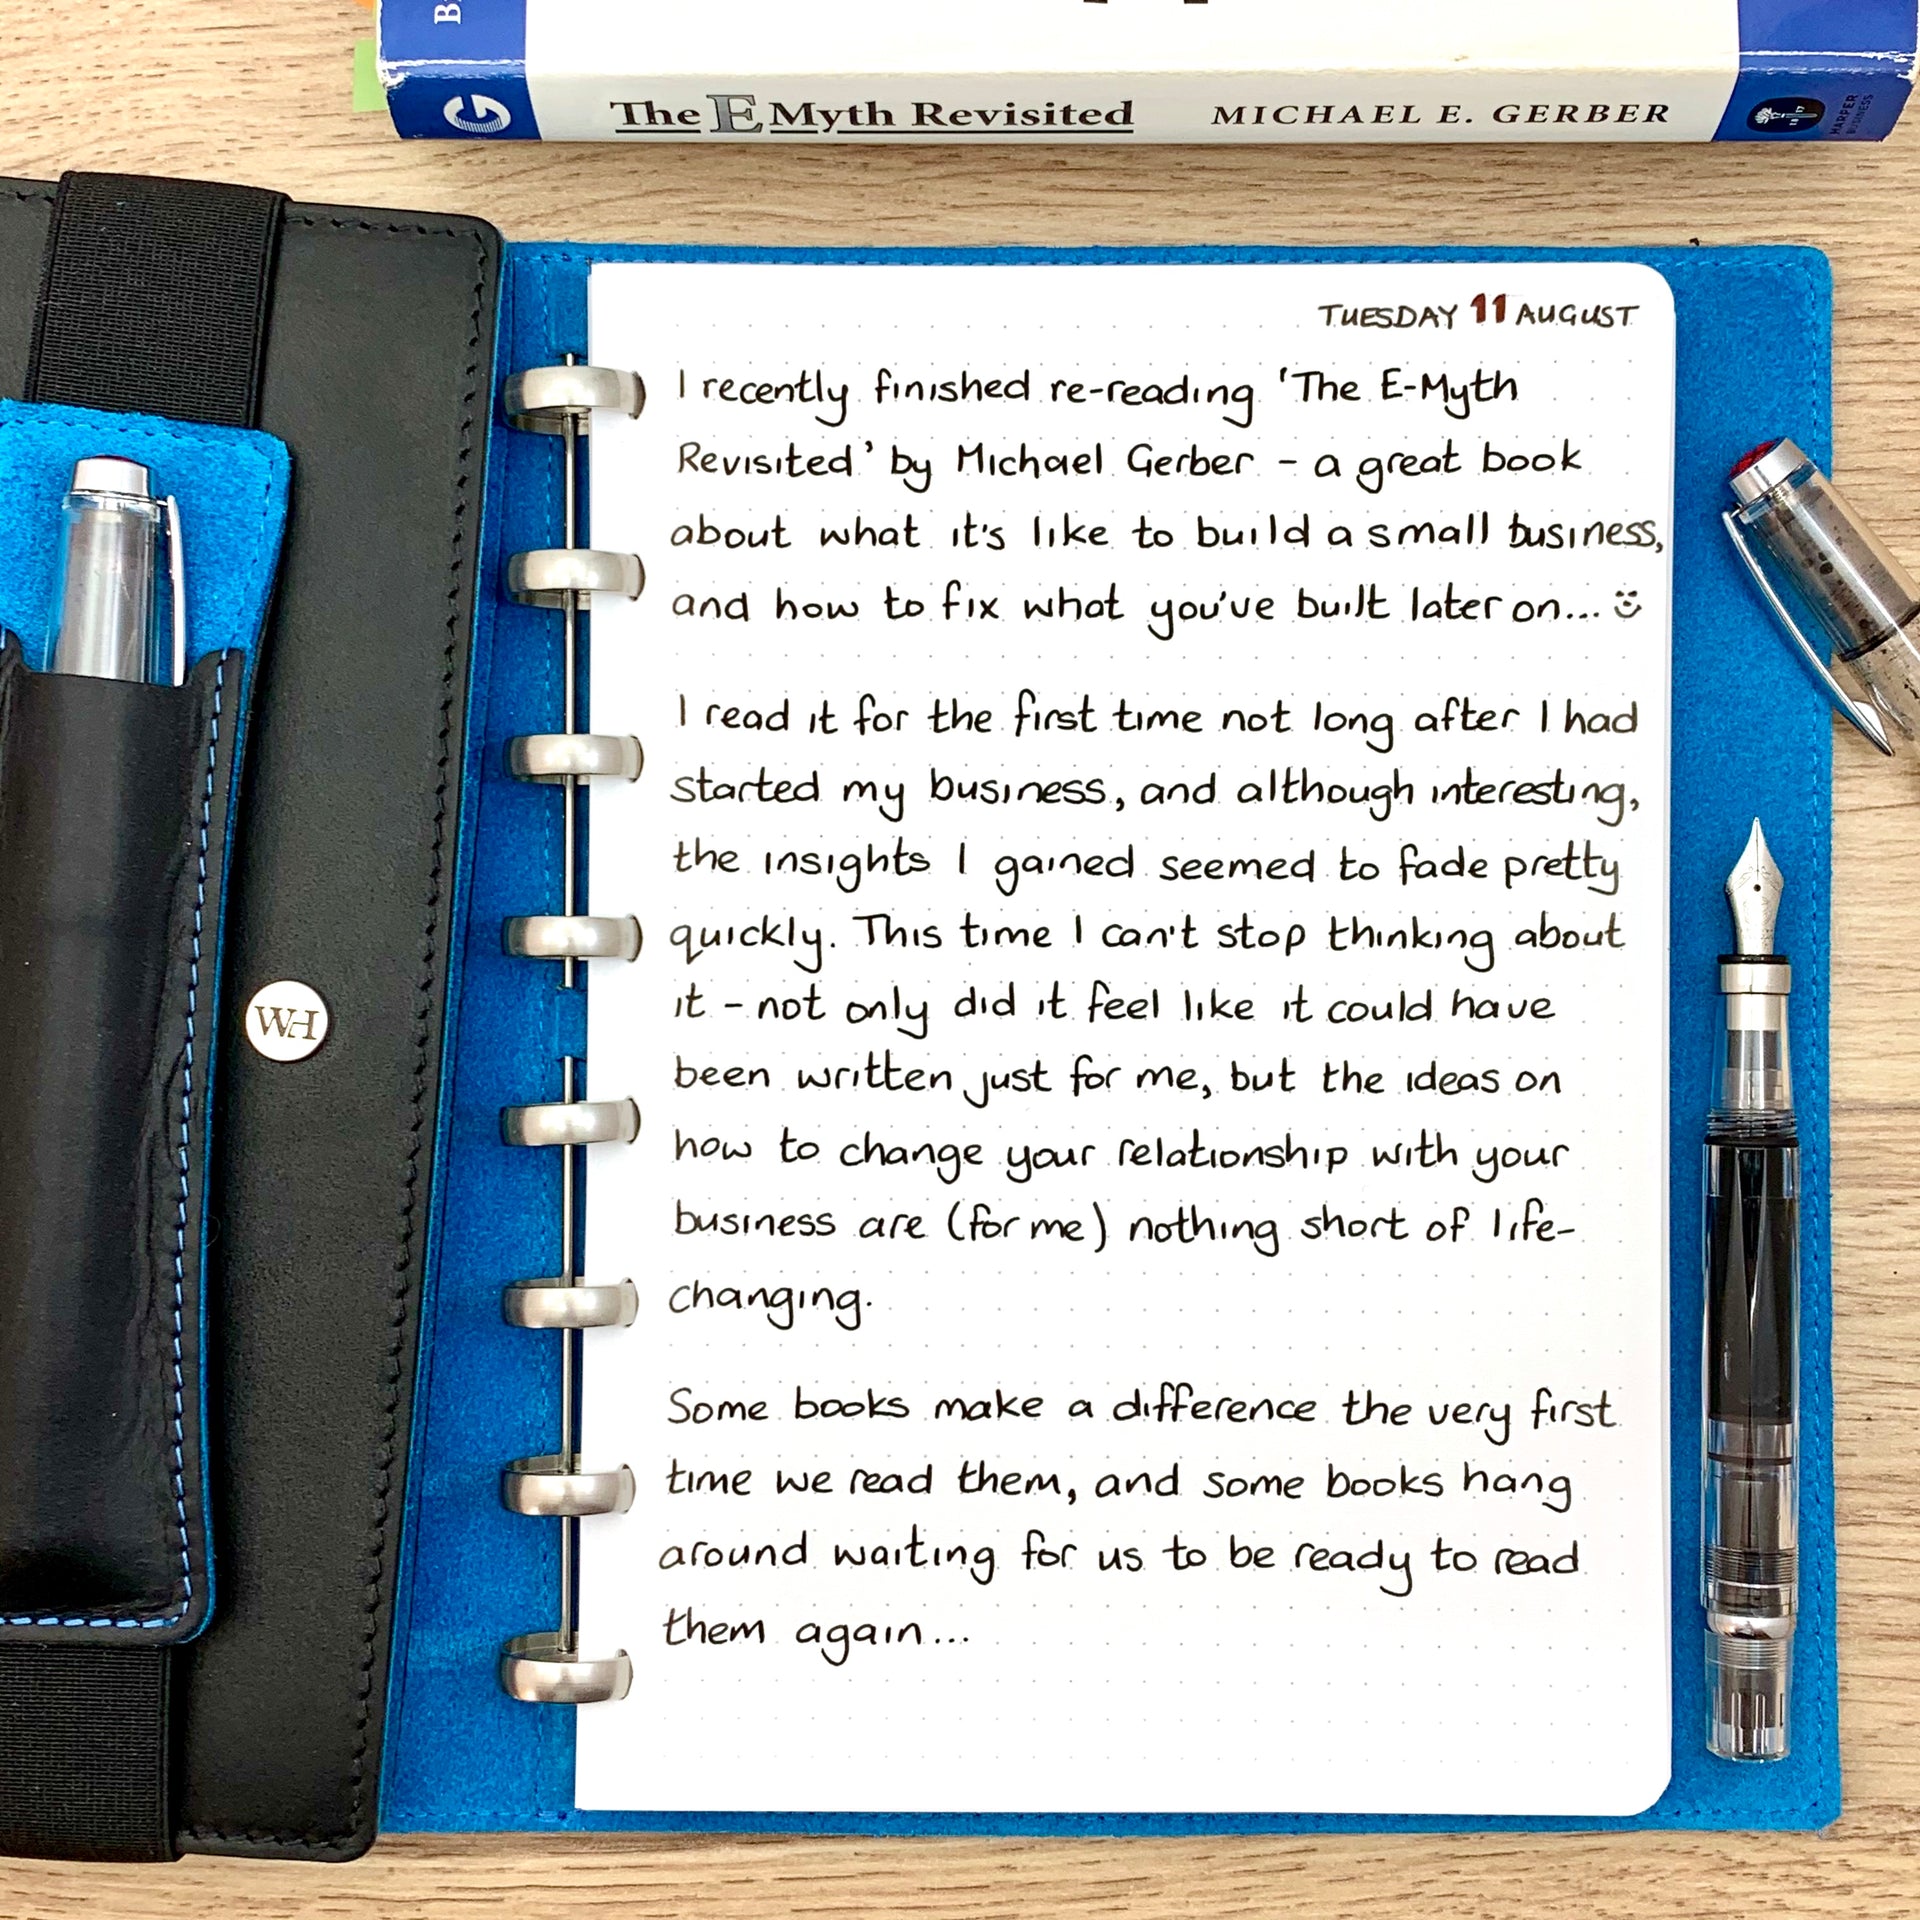 The E Myth Revisited MICHAEL E. GERBER HARPER BUSINESS
TUESDAY 11 AUGUST
I recently finished re-reading 'The E-Myth
Revisited' by Michael Gerber - a great book
about what it's like to build a small business,
and how to fix what you've built later on... 
I read it for the first time not long after I had
started my business, and although interesting,
the insights I gained seemed to fade pretty
quickly. This time I can't stop thinking about
it - not only did it feel like it could have
been written just for me, but the ideas on
how to change your relationship with your
business are (for me) nothing short of life-
changing.
Some books make a difference the very first
time we read them, and some books hang
around waiting for us to be ready to read
them again...
WH